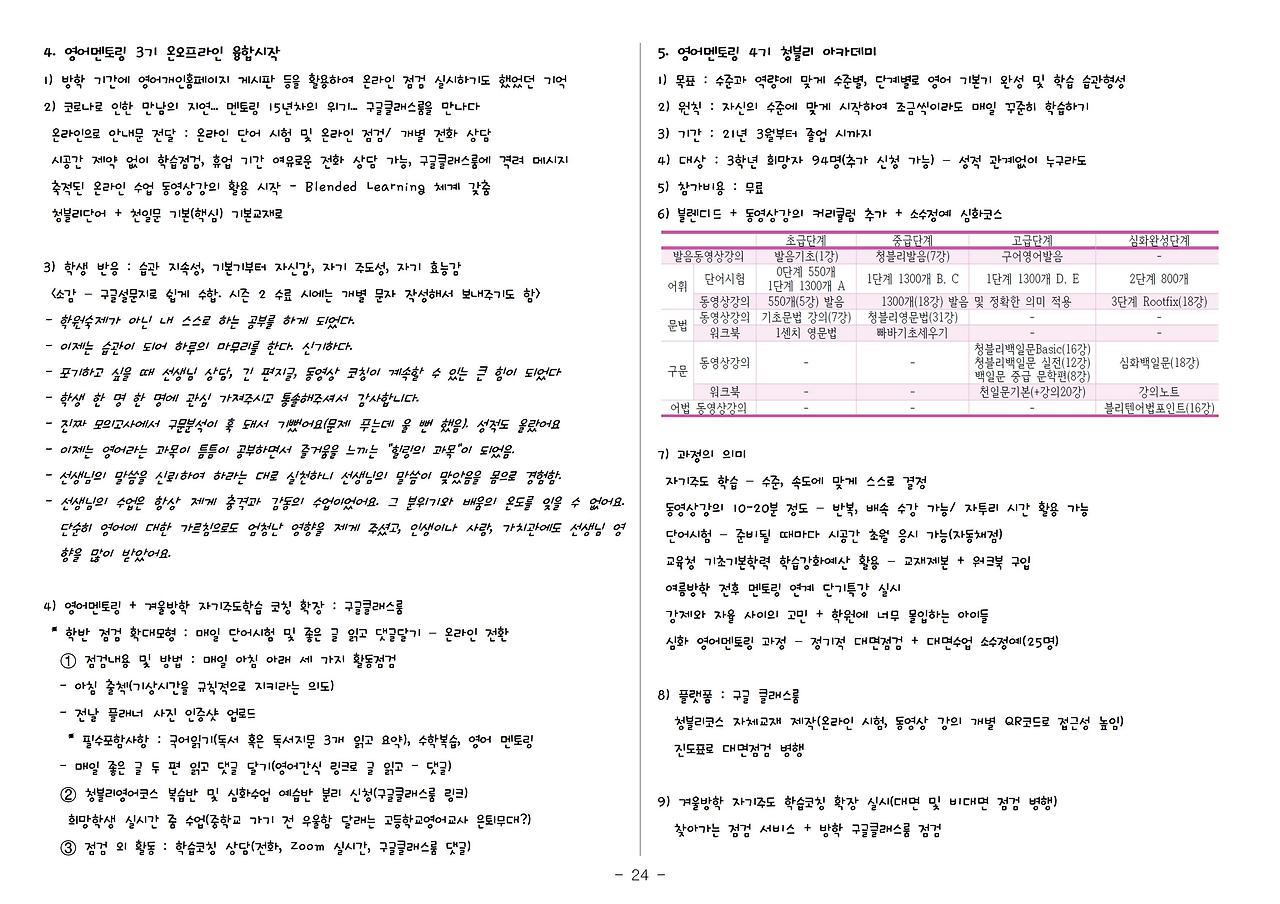 4. 영어멘토링 3기 온오프라인 융합시작
1) 방학 기간에 영어개인홈페이지 게시판 등을 활용하여 온라인 점검 실시하기도 했었던 기억
2) 코로나로 인한 만남의 지연... 멘토링 15년차의 위기... 구글클래스룸을 만나다
온라인으로 안내문 전달 : 온라인 단어 시험 및 온라인 점검/ 개별 전화 상담
시공간 제약 없이 학습점검, 휴업 기간 여유로운 전화 상담 가능, 구글클래스룸에 격려 메시지
축적된 온라인 수업 동영상강의 활용 시작 - Blended Learning 체계 갖춤
청블리단어 + 천일문 기본(핵심) 기본교재로
3) 학생 반응 : 습관 지속성, 기본기부터 자신감, 자기 주도성, 자기 효능감
<소감 - 구글설문지로 쉽게 수합. 시즌 2 수료 시에는 개별 문자 작성해서 보내주기도 함>
- 학원숙제가 아닌 내 스스로 하는 공부를 하게 되었다.
- 이제는 습관이 되어 하루의 마무리를 한다. 신기하다.
- 포기하고 싶을 때 선생님 상담, 긴 편지글, 동영상 코칭이 계속할 수 있는 큰 힘이 되었다
- 학생 한 명 한 명에 관심 가져주시고 통솔해주셔서 감사합니다.
- 진짜 모의고사에서 구문분석이 훅 돼서 기뻤어요(문제 푸는데 울 뻔 했음). 성적도 올랐어요
- 이제는 영어라는 과목이 틈틈이 공부하면서 즐거움을 느끼는 "힐링의 과목"이 되었음.
- 선생님의 말씀을 신뢰하여 하라는 대로 실천하니 선생님의 말씀이 맞았음을 몸으로 경험함.
- 선생님의 수업은 항상 제게 충격과 감동의 수업이었어요. 그 분위기와 배움의 온도를 잊을 수 없어요.
단순히 영어에 대한 가르침으로도 엄청난 영향을 제게 주셨고, 인생이나 사랑, 가치관에도 선생님 영
향을 많이 받았어요.
4) 영어멘토링 + 겨울방학 자기주도학습 코칭 확장 : 구글클래스룸
* 학반 점검 확대모형 : 매일 단어시험 및 좋은 글 읽고 댓글달기 - 온라인 전환
① 점검내용 및 방법 : 매일 아침 아래 세 가지 활동점검
- 아침 출첵(기상시간을 규칙적으로 지키라는 의도)
- 전날 플래너 사진 인증샷 업로드
* 필수포함사항 : 국어읽기(독서 혹은 독서지문 3개 읽고 요약), 수학복습, 영어 멘토링
- 매일 좋은 글 두 편 읽고 댓글 달기(영어간식 링크로 글 읽고 - 댓글)
② 청블리영어코스 복습반 및 심화수업 예습반 분리 신청(구글클래스룸 링크)
희망학생 실시간 줌 수업(중학교 가기 전 우울함 달래는 고등학교영어교사 은퇴무대?)
③ 점검 외 활동 : 학습코칭 상담(전화, Zoom 실시간, 구글클래스룸 댓글)
5. 영어멘토링 4기 청블리 아카데미
1) 목표 : 수준과 역량에 맞게 수준별, 단계별로 영어 기본기 완성 및 학습 습관형성
2) 원칙 : 자신의 수준에 맞게 시작하여 조금씩이라도 매일 꾸준히 학습하기
3) 기간 : 21년 3월부터 졸업 시까지
4) 대상 : 3학년 희망자 94명(추가 신청 가능) - 성적 관계없이 누구라도
5) 참가비용 : 무료
6) 블렌디드 + 동영상강의 커리큘럼 추가 + 소수정예 심화코스
초급단계 중급단계 고급단계 심화완성단계
발음동영상강의 발음기초(1강) 청블리발음(7강) 구어영어발음 -
어휘 단어시험 0단계 550개 1단계 1300개 A 1단계 1300개 B. C 1단계 1300개 D. E 2단계 800개
동영상강의 550개(5강) 발음 1300개(18강) 발음 및 정확한 의미 적용 3단계 Rootfix(18강)
문법 동영상강의 기초문법 강의(7강) 청블리영문법(31강) - -
워크북 1센치 영문법 빠바기초세우기 - -
구문 동영상강의 - - 청블리백일문Basic(16강) 청블리백일문 실전(12강) 백일문 중급 문학편(8강) 심화백일문(18강)
워크북 - - 천일문기본(+강의20강) 강의노트
어법 동영상강의 - - - 블리텐어법포인트(16강)
7) 과정의 의미
자기주도 학습 - 수준, 속도에 맞게 스스로 결정
동영상강의 10-20분 정도 - 반복, 배속 수강 가능/ 자투리 시간 활용 가능
단어시험 - 준비될 때마다 시공간 초월 응시 가능(자동채점)
교육청 기초기본학력 학습강화예산 활용 - 교재제본 + 워크북 구입
여름방학 전후 멘토링 연계 단기특강 실시
강제와 자율 사이의 고민 + 학원에 너무 몰입하는 아이들
심화 영어멘토링 과정 - 정기적 대면점검 + 대면수업 소수정예(25명)
8) 플랫폼 : 구글 클래스룸
청블리코스 자체교재 제작(온라인 시험, 동영상 강의 개별 QR코드로 접근성 높임)
진도표로 대면점검 병행
9) 겨울방학 자기주도 학습코칭 확장 실시(대면 및 비대면 점검 병행)
찾아가는 점검 서비스 + 방학 구글클래스룸 점검
- 24 -